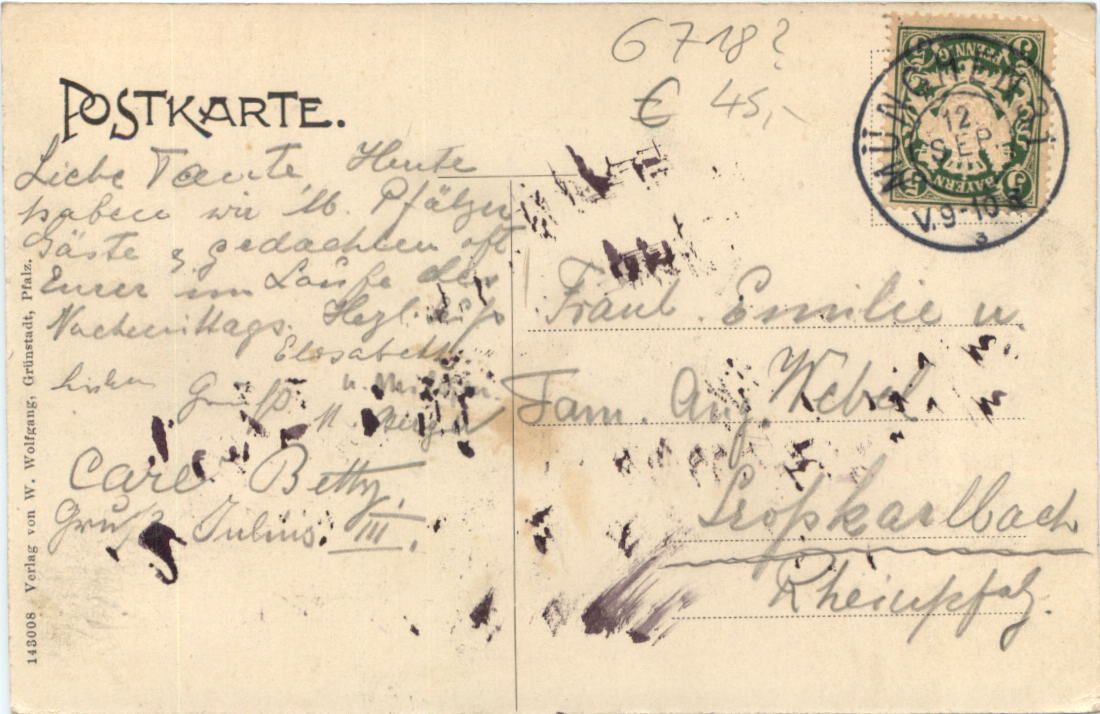 6718?
€ 45,-
POSTKARTE.
PFENNIG
BAYERN
5
MÜNCHEN
12
SEP.
V.9-10
Liebe Tante, Heute
haben wir lb. Pfälzer
Gäste & gedachten oft
Eurer im Laufe des
Nachmittags. Herzl.
Elisabeth
Gruß
Carl Betty.
Gruß Julius III.
Fräul. Emilie u.
Fam. Aug. Webel
Großkarlbach
Rheinpfalz.
143008 Verlag von W. Wolfgang, Grünstadt, Pfalz.